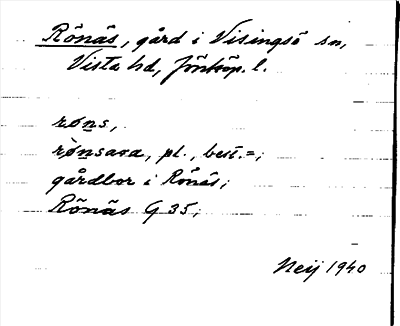 Rönäs, gård i Visingsö sn,
Vista hd, Jönköp. l.
røns,
rønsara, pl., best. =;
gårdbor i Rönäs;
Rönäs G 35;
Neij 1940